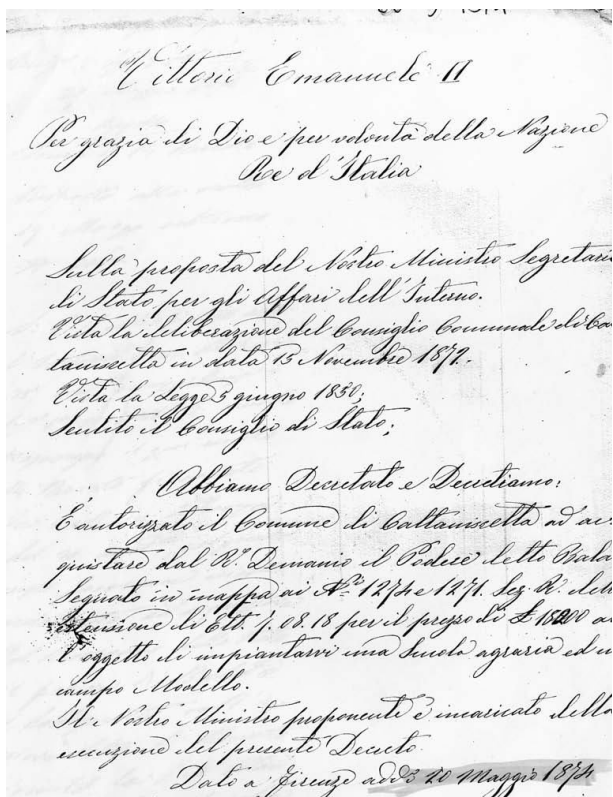 Vittorio Emanuele II
Per grazia di Dio e per volontà della Nazione
Re d'Italia
Sulla proposta del Nostro Ministro Segretari
di Stato per gli Affari dell'Interno.
Vista la deliberazione del Consiglio Comunale di Cal
tanissetta in data 15 Novembre 1872.
Vista la Legge 5 giugno 1850;
Sentito il Consiglio di Stato;
Abbiamo Decretato e Decretiamo:
È autorizzato il Comune di Caltanissetta ad ac
quistare dal R.º Demanio il Podere detto Bala
Segnato in mappa ai N.ri 1274 e 1271. Sez. R. dell
estensione di Ett. 7. 08. 18 per il prezzo di £ 15200 a
l'oggetto di impiantarvi una Scuola agraria ed u
campo Modello.
Il Nostro Ministro proponente è incaricato della
esecuzione del presente Decreto.
Dato a Firenze addì 20 Maggio 1874